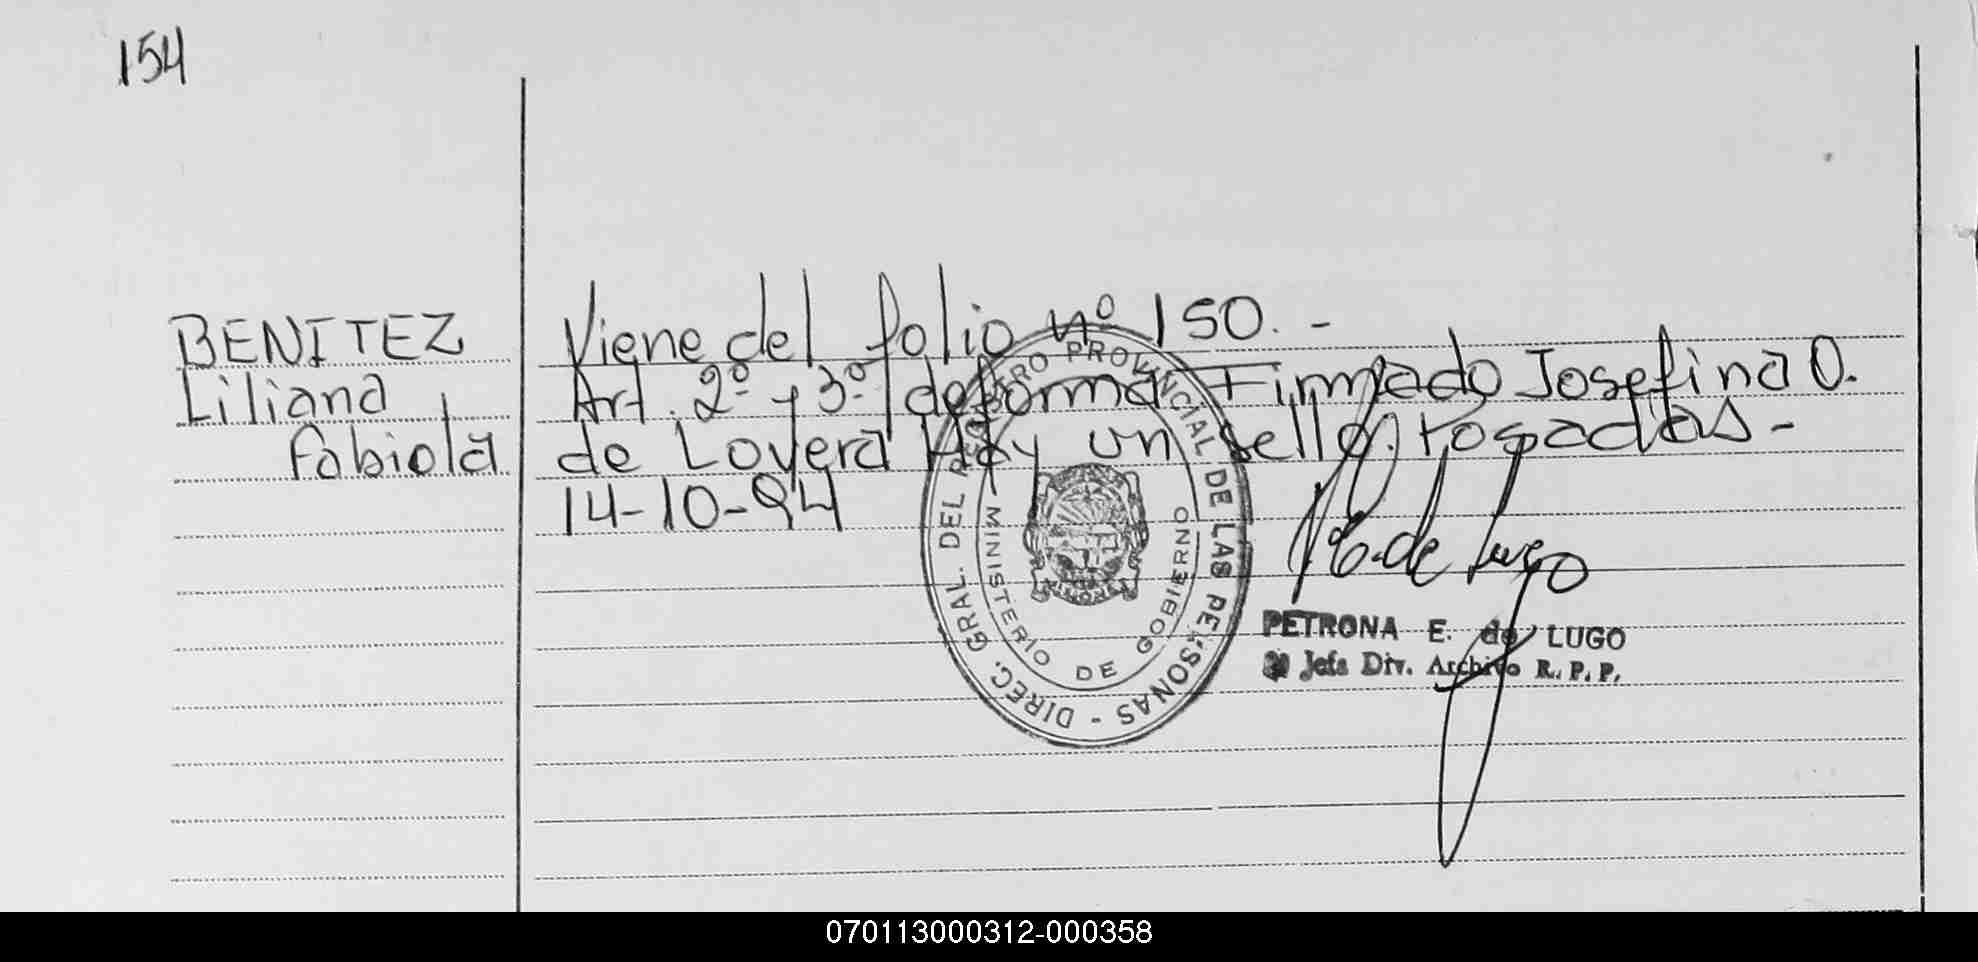 154
BENITEZ
Liliana
Fabiola
Viene del folio nº 150. -
Art. 2º y 3º de forma Firmado Josefina O.
de Lovera Hay un sello. Posadas -
14-10-94
DIREC. GRAL. DEL REGISTRO PROVINCIAL DE LAS PERSONAS -
MINISTERIO DE GOBIERNO
de Lugo
PETRONA E. de LUGO
Jefa Div. Archivo R. P. P.
070113000312-000358